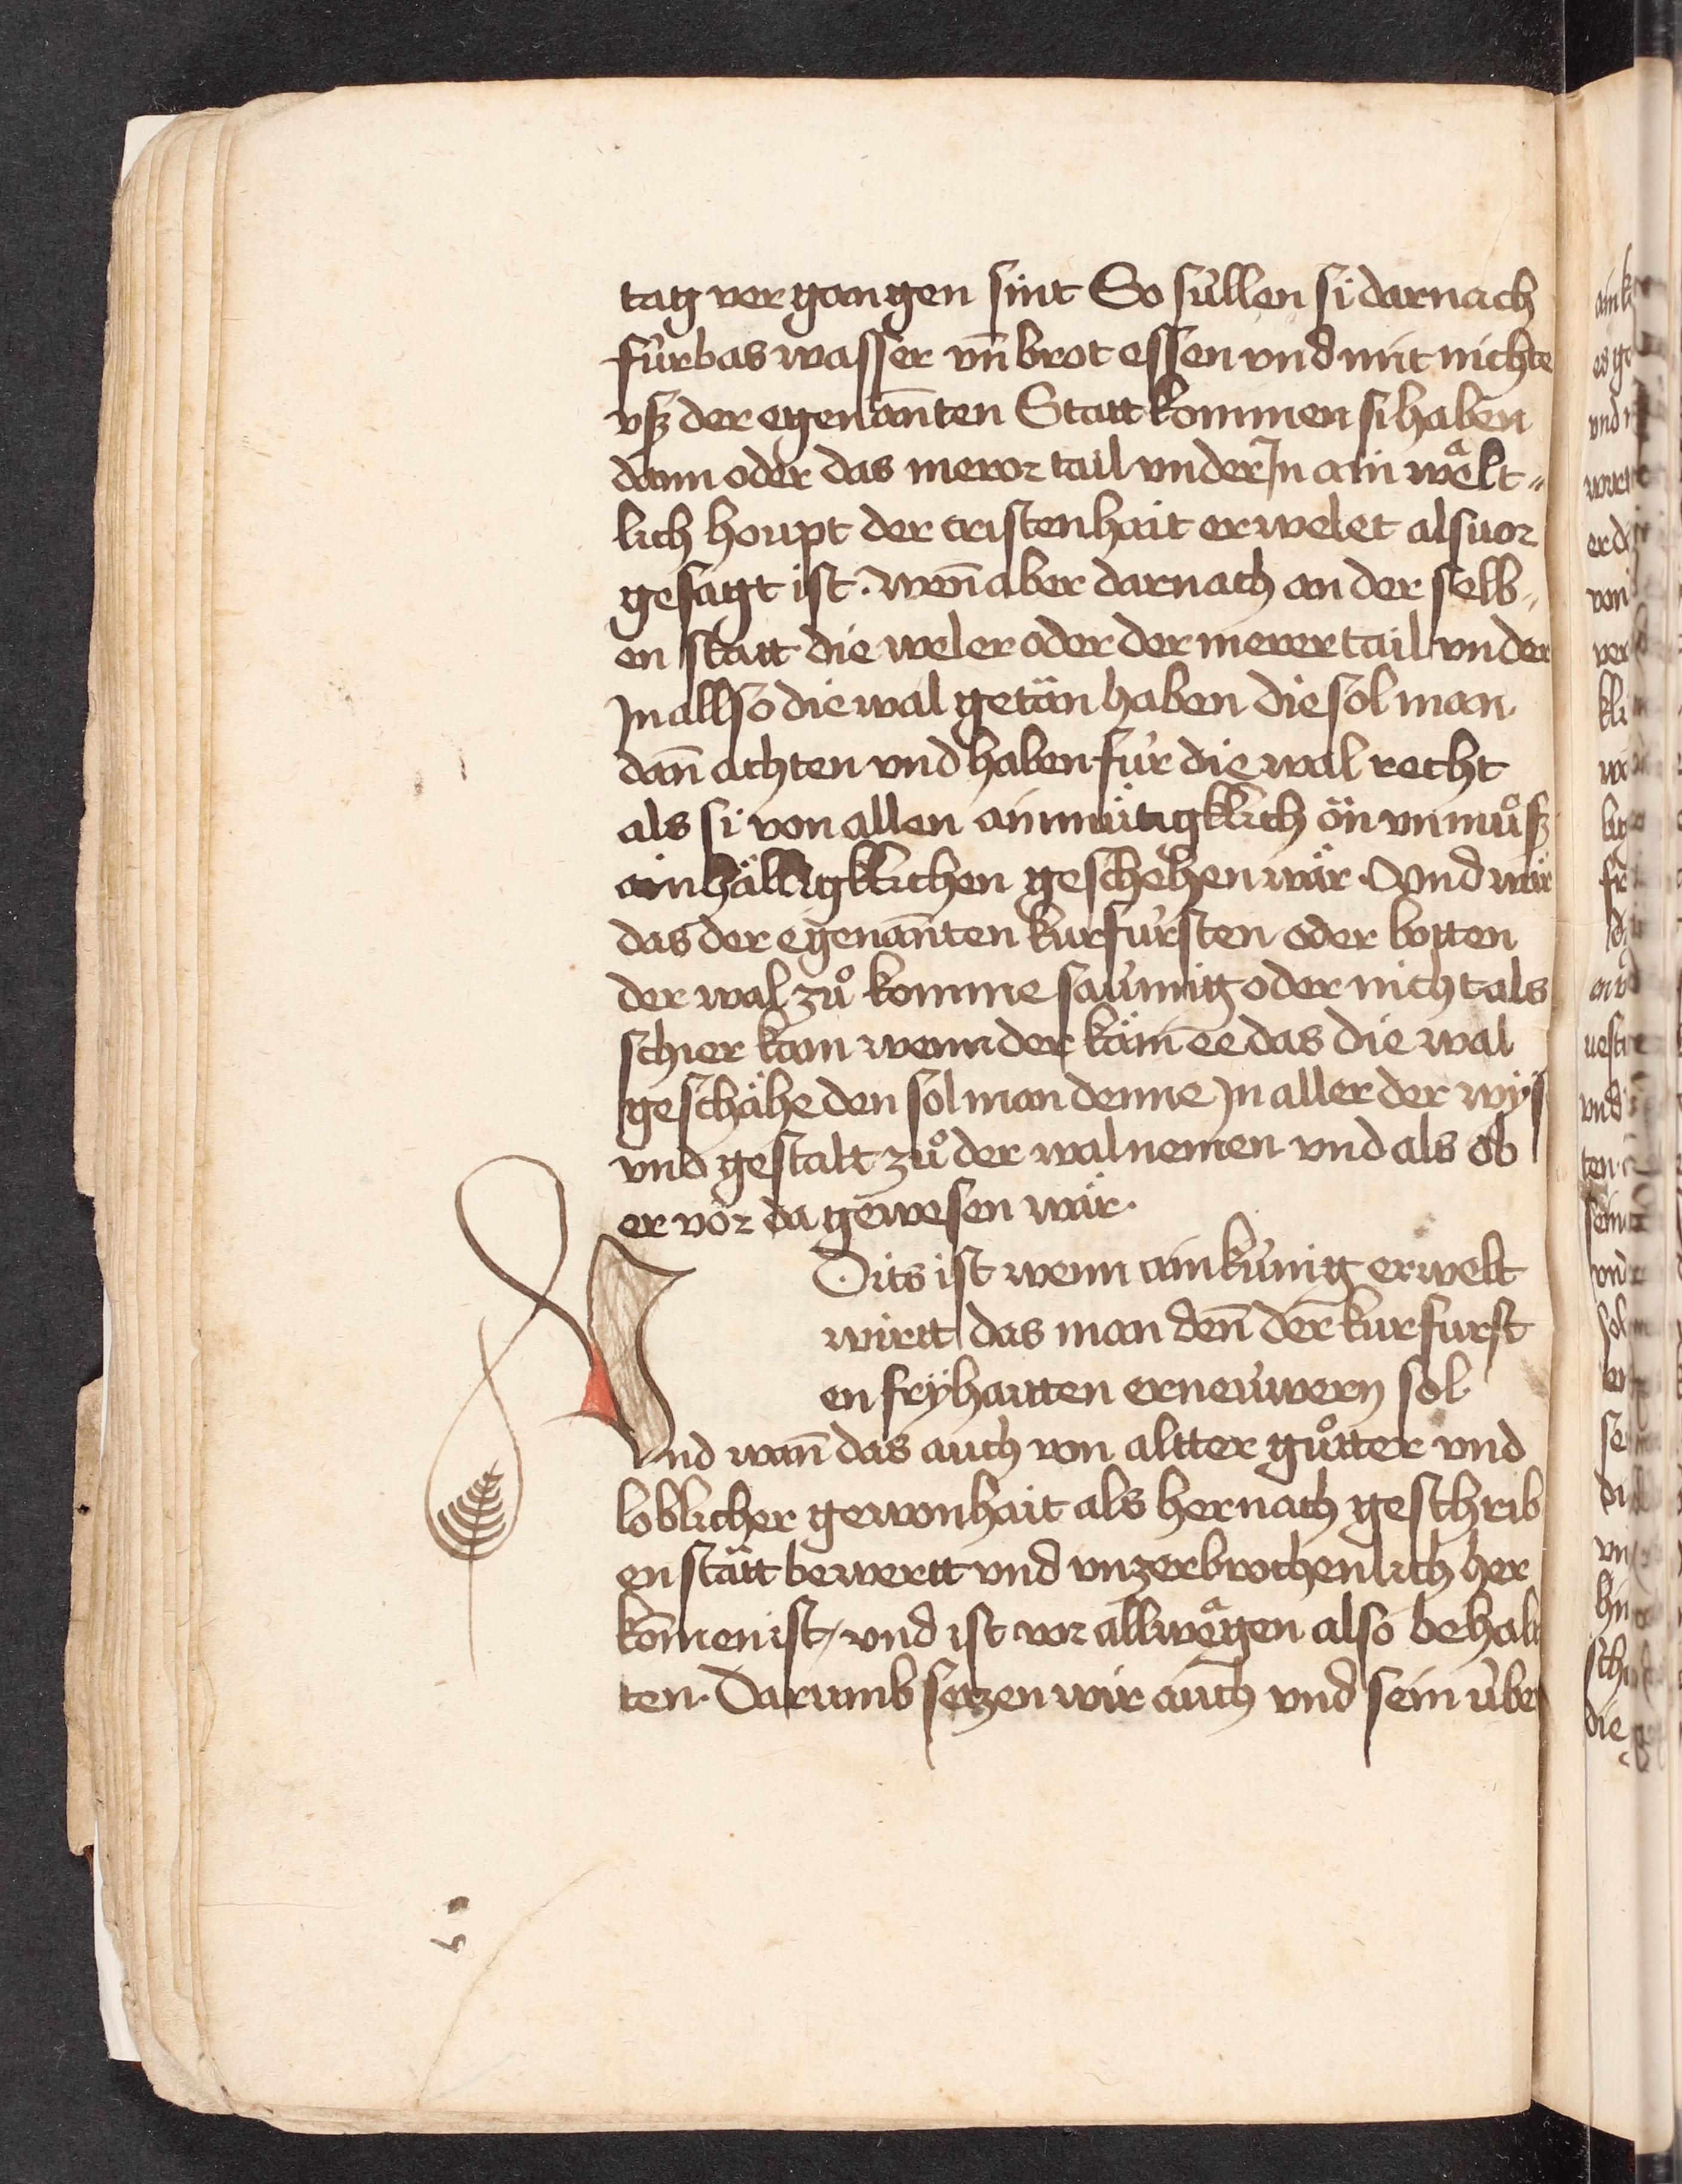 tag vergangen sint So süllen si darnach
fürbas wasser vn̄ brot essen vnd mit nichte
vsz der egenan̄ten Statt kommen si haben
dann oder das meror tail vnder Jn ain wåelt„
lich houpt der cristenhait erwelet als uor
gesagt ist. wen̄ aber darnach an der selb„
en statt die weler oder der merer tail vnder
Jn allso die wal getän haben die sol man
dan̄ achten vnd haben für die wal recht
als si von allen ainmütigklich ön vnmůsz
ainhälligklichen geschehen wär. Vnd wär
das der egenan̄ten kurfürsten oder botten
der wal zů komme saümig oder nicht als
schier kam wenn der käm ee das die wal
geschähe den sol man denne Jn aller der wÿs
vnd gestalt zů der wal nemen vnd als ob
er vor da gewesen wär.
Dits ist wenn ain künig erwelt
wirtt das man den̄ der kurfurst
en frÿhaitten erneüwern sol
Und wan̄ das auch von altter gůtter vnd
loblicher gewonhait als hernach geschrib
en stätt bewertt vnd vnzerbrochenlich her
kom̄en ist, vnd ist vor allwägen also behalt
ten. Darumb setzen wir auch vnd sein über